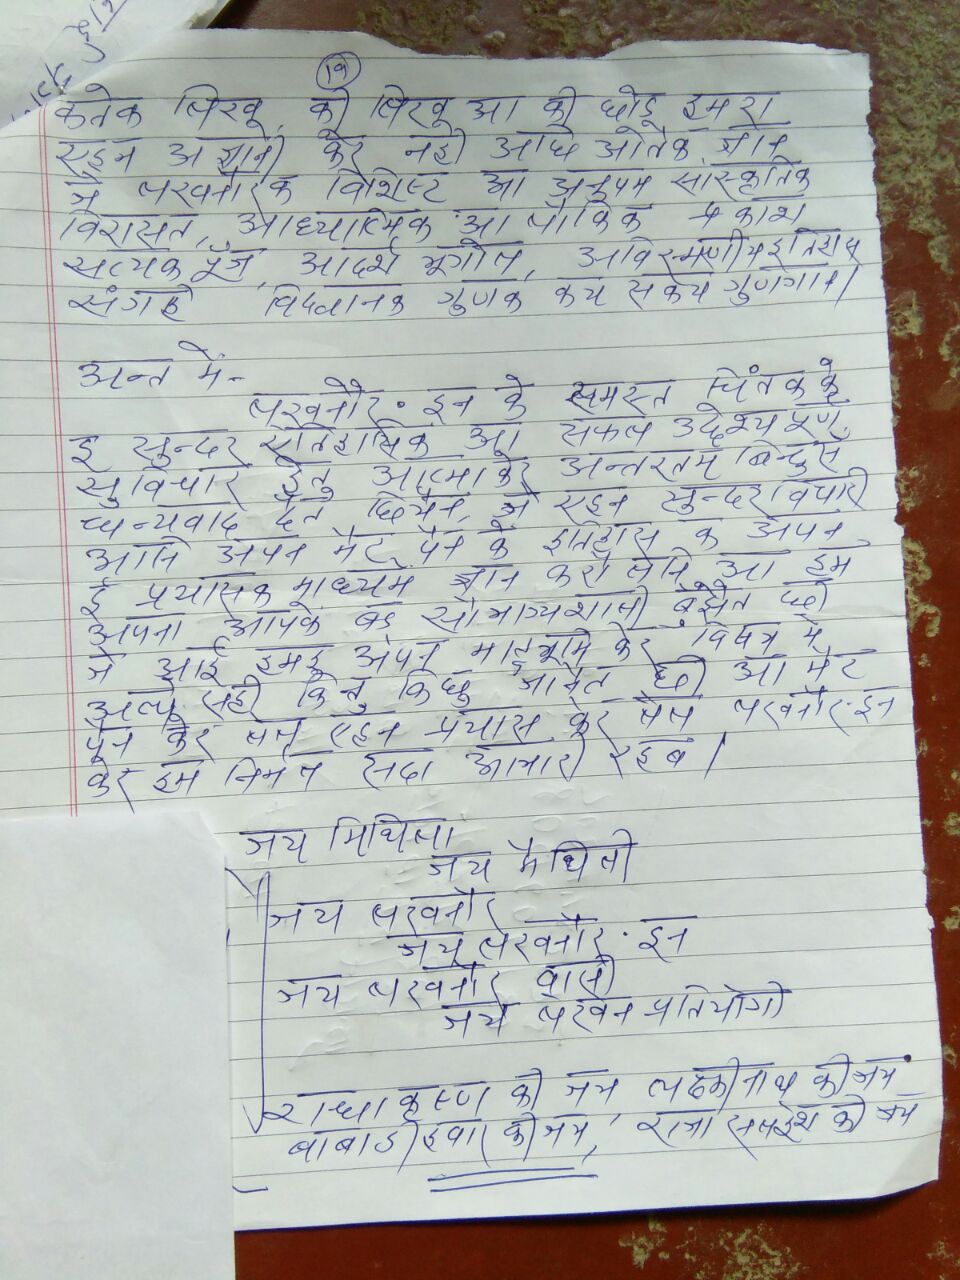 19
कतेक लिखू, की लिखू आ की छोड़ू हमरा
एहन अज्ञानी केर नही आछि ओतेक ज्ञान
जे लखनौरक विशिष्ट आ अनुपम सांस्कृतिक
विरासत, आध्यात्मिक आ लौकिक प्रकाश
सत्यक पूंज, आदर्श भूगोल, अविस्मणीय इतिहास
संगहि विद्वानक गुणक कय सकय गुणगान।
अन्त में-
लखनौर·इन के समस्त चिंतक के
इ सुन्दर ऐतिहासिक आ सफल उद्देश्य पूर्ण
सुविचार हेतु आत्मा केर अन्तरतम बिन्दु सं
धन्यवाद दैत छियैन, जे एहन सुन्दर विचार
आनि अपन नैट पैन के इतिहास क अपन
ई प्रयासक माध्यमे ज्ञान करौलनि आ हम
अपना आपके बड़ सौभाग्यशाली बुझैत छी
जे आई हमहू अपन मातृभूमि केर विषय में
अल्प सही किन्तु किछु जानैत छी आ नैट
पैन केर लेल एहन प्रयास केर लेल लखनौर·इन
केर हम निमित सदा आभारी रहब।
जय मिथिला
जय मैथिली
जय लखनौर
जय लखनौर·इन
जय लखनौर वासी
जय लखन प्रतियोगी
राधा कृष्ण की जय लक्ष्मीनाथ की जय
बाबा डीहवार की जय, राजा सलहेश की जय